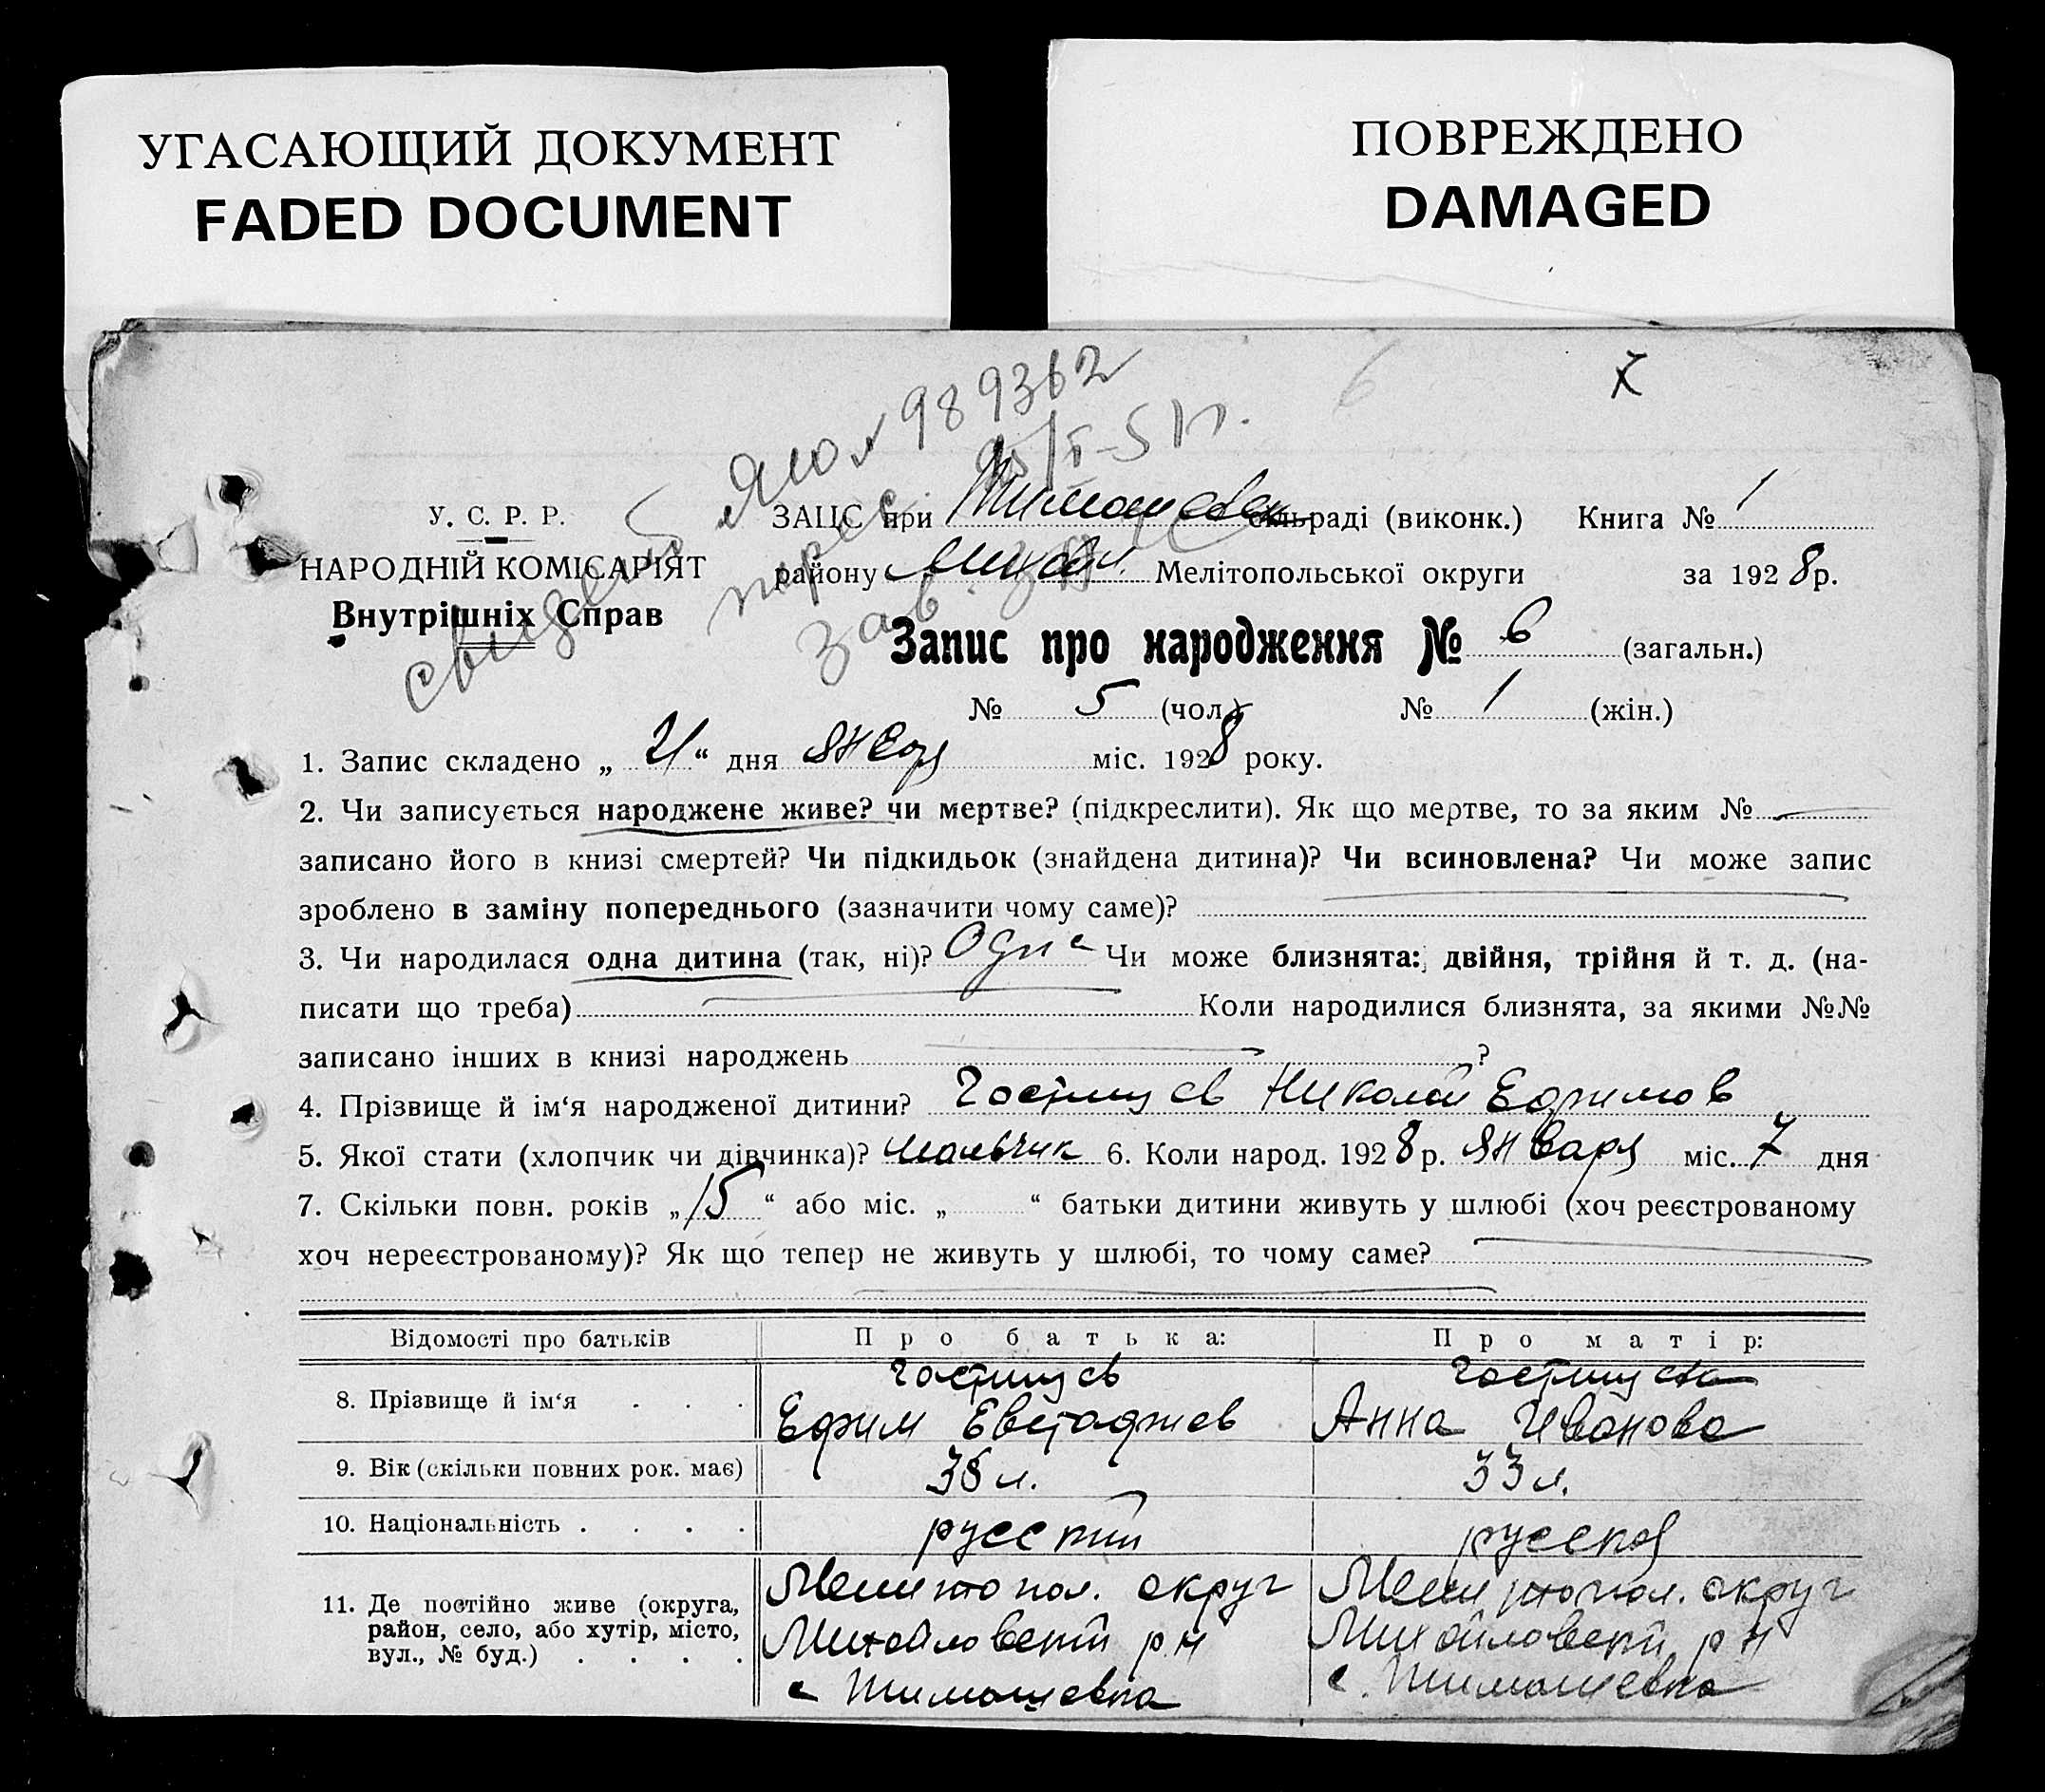 УГАСАЮЩИЙ ДОКУМЕНТ
FADED DOCUMENT
ПОВРЕЖДЕНО
DAMAGED
989362
У. С. Р. Р.
НАРОДНІЙ КОМІСАРІЯТ
Внутрішніх Справ
ЗАЦС при Тимошевск сільраді (виконк.) Книга № 1
району Михайл. Мелітопольської округи за 1928 р.
Запис про народження № 6 (загальн.)
№ 5 (чол.) № 1 (жін.)
1. Запис складено „ 21 “ дня Января міс. 1928 року.
2. Чи записується народжене живе? чи мертве? (підкреслити). Як що мертве, то за яким №
записано його в книзі смертей? Чи підкидьок (знайдена дитина)? Чи всиновлена? Чи може запис
зроблено в заміну попереднього (зазначити чому саме)?
3. Чи народилася одна дитина (так, ні)? Одне Чи може близнята: двійня, трійня й т. д. (на-
писати що треба) Коли народилися близнята, за якими №№
записано інших в книзі народжень ?
4. Прізвище й ім‘я народженої дитини? Гостищев Николай Ефимов
5. Якої стати (хлопчик чи дівчинка)? мальчик 6. Коли народ. 1928 р. Января міс. 7 дня
7. Скільки повн. років „ 15 “ або міс. „ “ батьки дитини живуть у шлюбі (хоч реєстрованому
хоч нереєстрованому)? Як що тепер не живуть у шлюбі, то чому саме?
Відомості про батьків Про батька: Про матір:
8. Прізвище й ім‘я Гостищев Гостищева
Ефим Евстафиев Анна Иванова
9. Вік (скільки повних рок. має) 38 л. 33 л.
10. Національність русский русская
11. Де постійно живе (округа, район, село, або хутір, місто, вул., № буд.) Мелитопол. округ Мелитопол. округ
Михайловский р н Михайловский р н
с Тимошевка с. Тимошевка